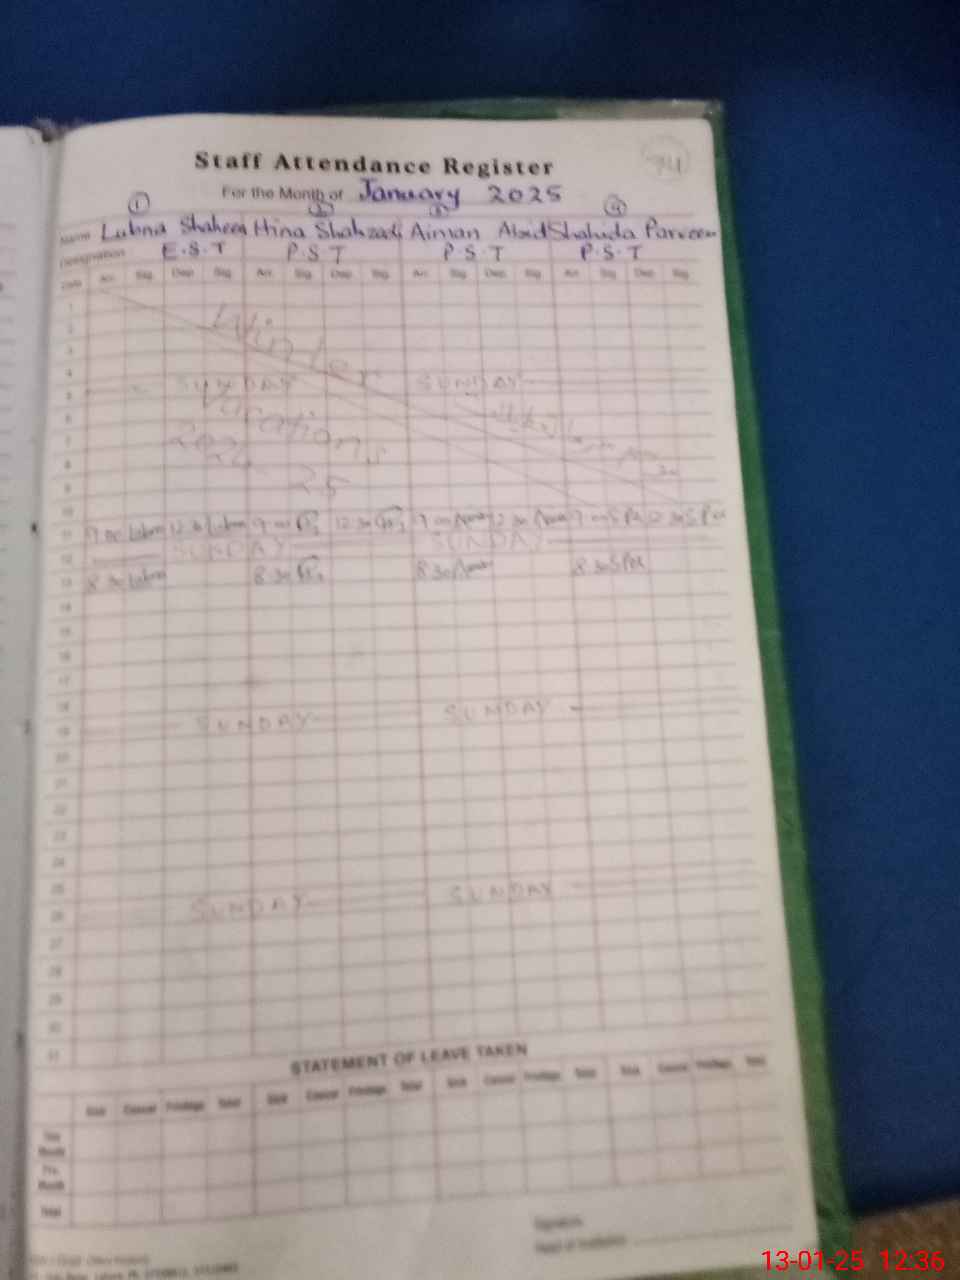 Staff Attendance Register
74
For the Month of January 2025
1 2 3 4
Name Lubna Shaheen Hina Shahzadi Aiman Abid Shahida Parveen
Designation E.S.T P.S.T P.S.T P.S.T
Date Arr. Sig. Dep. Sig. Arr. Sig. Dep. Sig. Arr. Sig. Dep. Sig. Arr. Sig. Dep. Sig.
1
2
3
4
5 SUNDAY SUNDAY
6
7
8
9
10
Winter
Vacations
2024
25
11 9 00 Lubna 12 30 Lubna 9 00 12 30 9 00 12 30 9 00 12 30
12 SUNDAY SUNDAY
13 8 30 Lubna 8 30 8 30 8 30
14
15
16
17
18
19 SUNDAY SUNDAY
20
21
22
23
24
25
26 SUNDAY SUNDAY
27
28
29
30
31
STATEMENT OF LEAVE TAKEN
Sick Casual Privilege Total Sick Casual Privilege Total Sick Casual Privilege Total Sick Casual Privilege Total
This Month
Pre. Month
Total
Signature
Head of Institution
13-01-25 12:36